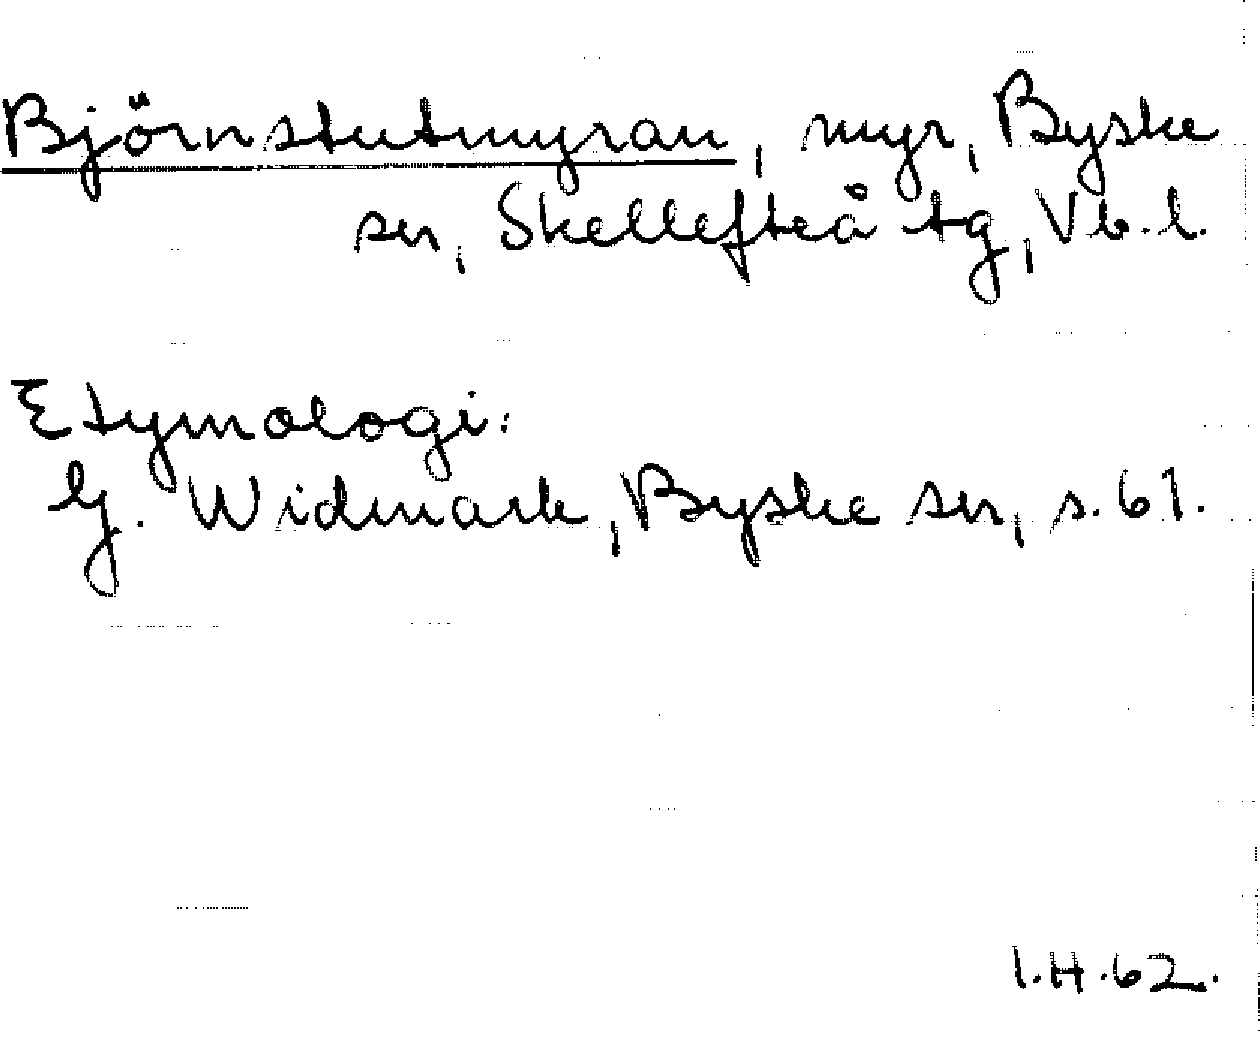 Björnstutmyran, myr, Byske
sn, Skellefteå tg, Vb.l.
Etymologi:
G. Widmark, Byske sn, s. 61.
I.H.62.